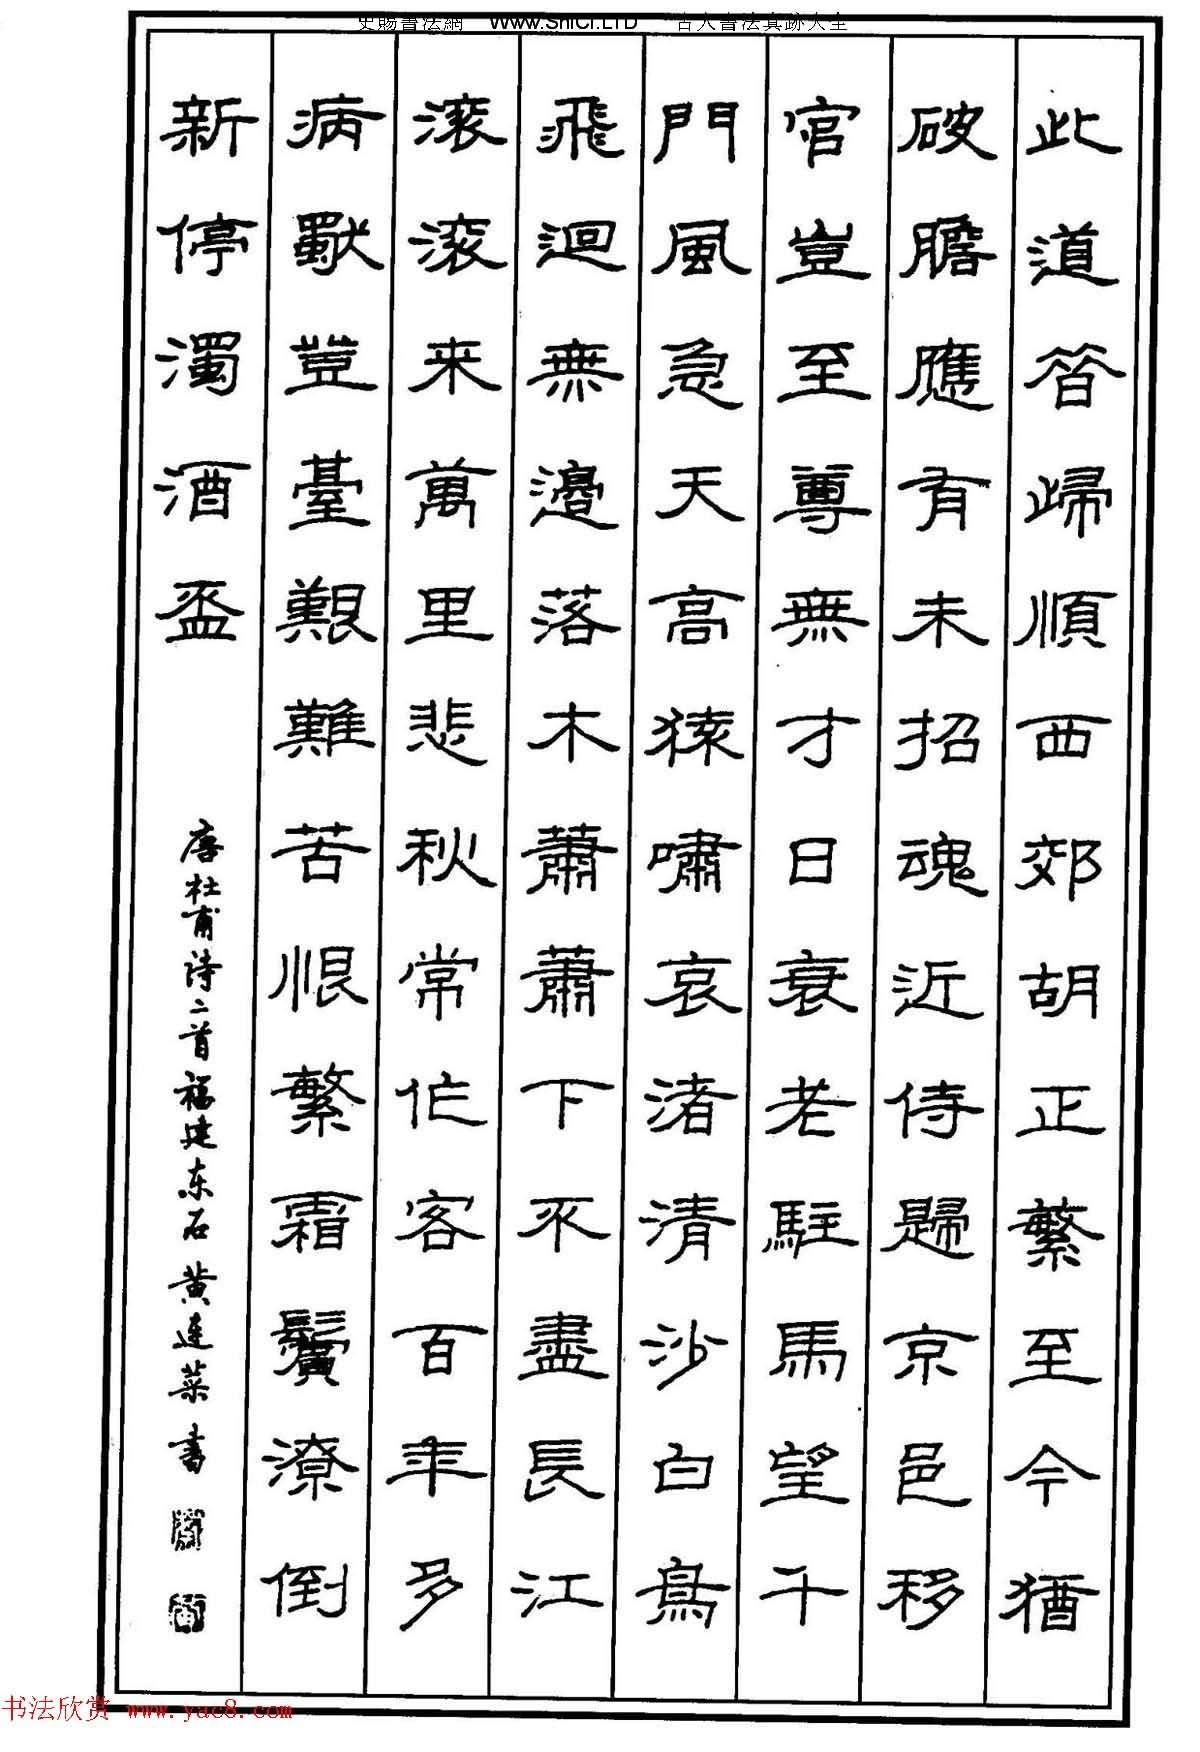 史賜書法網 www.ShiCi.LTD 古人書法真跡大全
此道昔歸順西郊胡正繁至今猶
破膽應有未招魂近侍歸京邑移
官豈至尊無才日衰老駐馬望千
門風急天高猿嘯哀渚清沙白鳥
飛迴無邊落木蕭蕭下不盡長江
滾滾来萬里悲秋常作客百年多
病獨登臺艱難苦恨繁霜鬢潦倒
新停濁酒盃
唐杜甫诗二首福建东石黄连菜書
书法欣赏 www.yac8.com